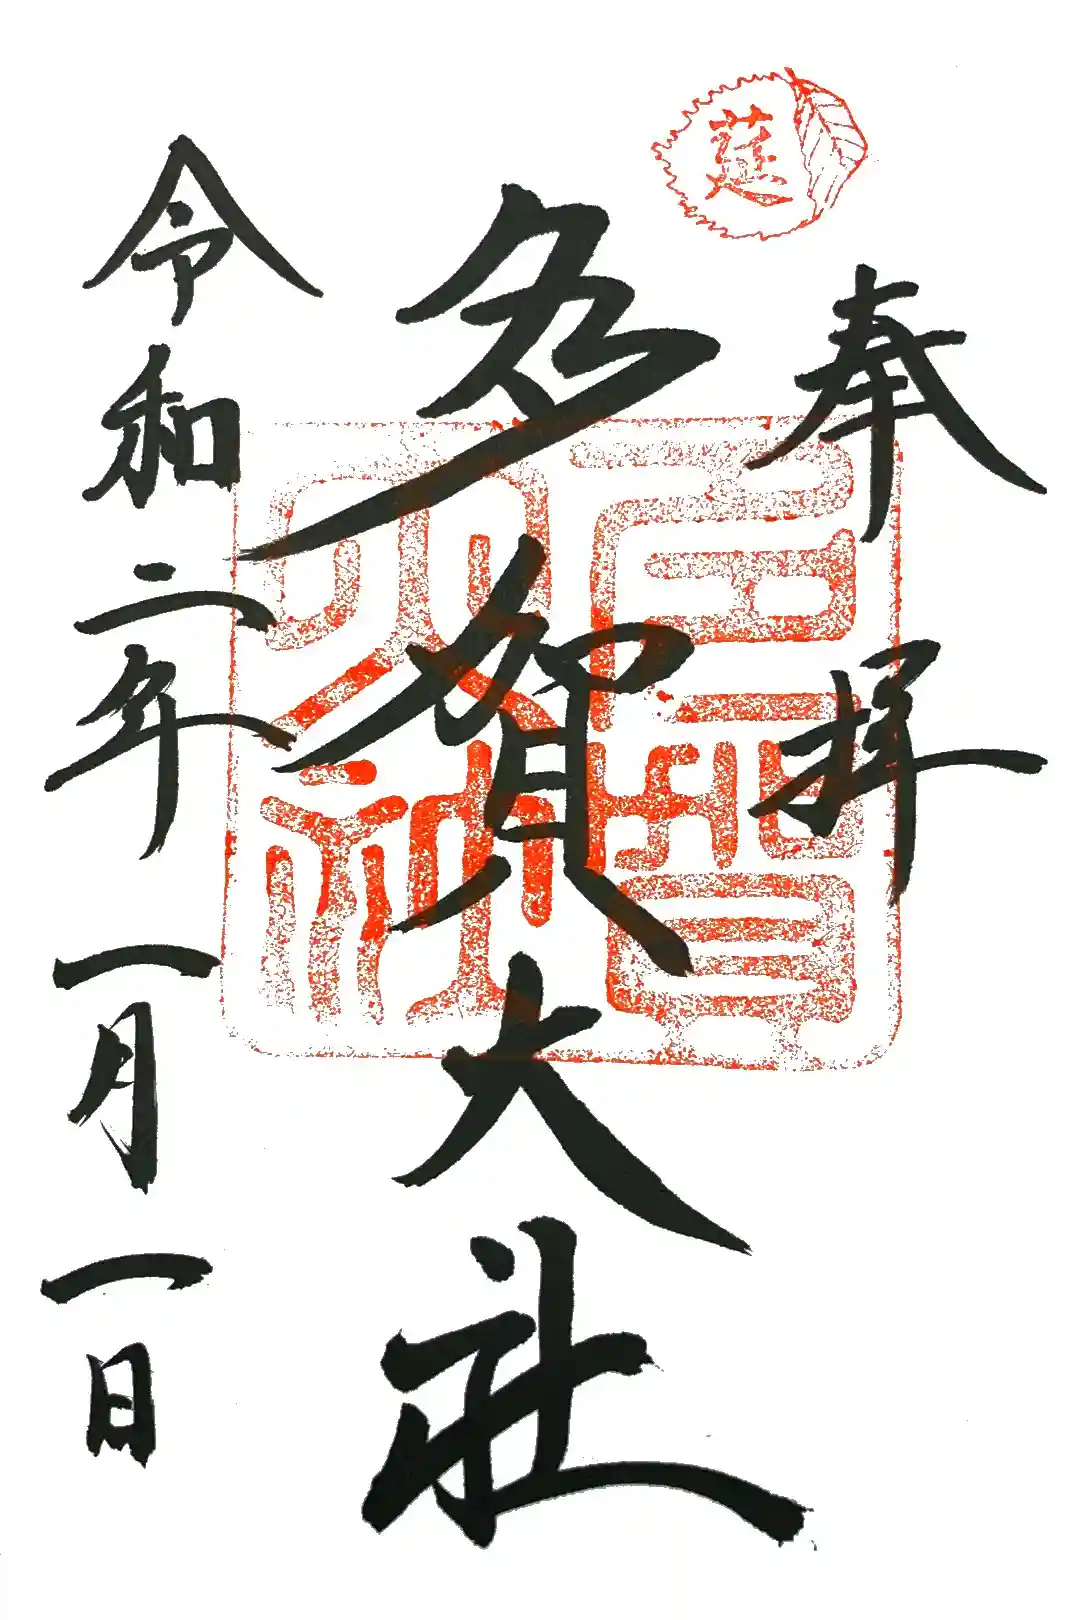 莚
奉拝
多賀大社
日向
多賀
大社
令和二年一月一日